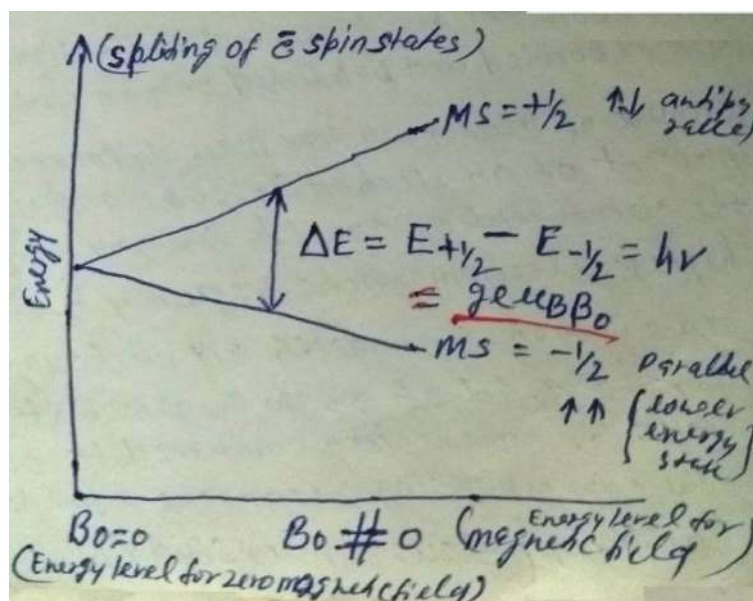 (spliding of ē spin states)
MS = +1/2 ↑↓ antipa
rallel
Energy
ΔE = E+1/2 − E−1/2 = hν
= geμBβ0
MS = −1/2 Parallel
↑↑ (lower
energy
state)
B0=0 B0 ≠ 0 (Energy level for
magnetic field)
(Energy level for zero magnetic field)